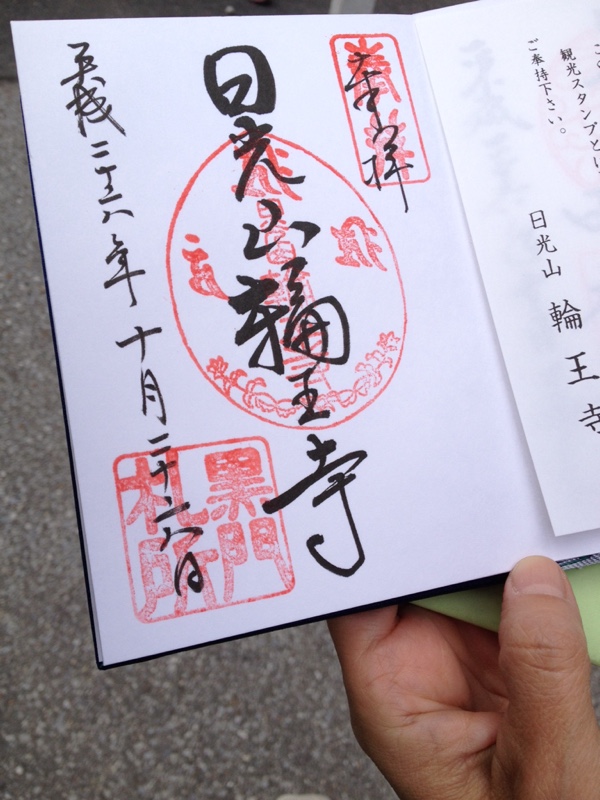 この
観光スタンプと
ご奉持下さい。
日光山 輪王寺
奉拝
日光山輪王寺
平成二十六年十月二十六日
黒門
札所